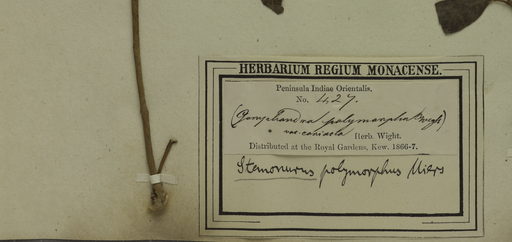 HERBARIUM REGIUM MONACENSE.
Peninsula Indiae Orientalis.
No. 427.
(Gomphandra polymorpha Wight)
var. Herb. Wight.
Distributed at the Royal Gardens, Kew. 1866-7.
Stemonurus polymorphus Miers